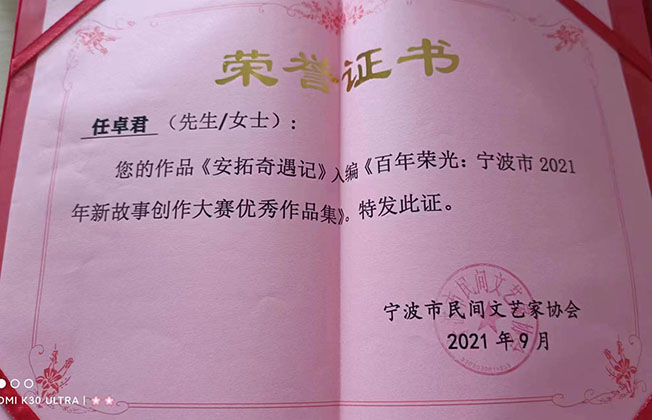 荣誉证书
任卓君（先生/女士）：
您的作品《安拓奇遇记》入编《百年荣光：宁波市2021
年新故事创作大赛优秀作品集》。特发此证。
宁波市民间文艺家协会
2021年9月
OMI K30 ULTRA